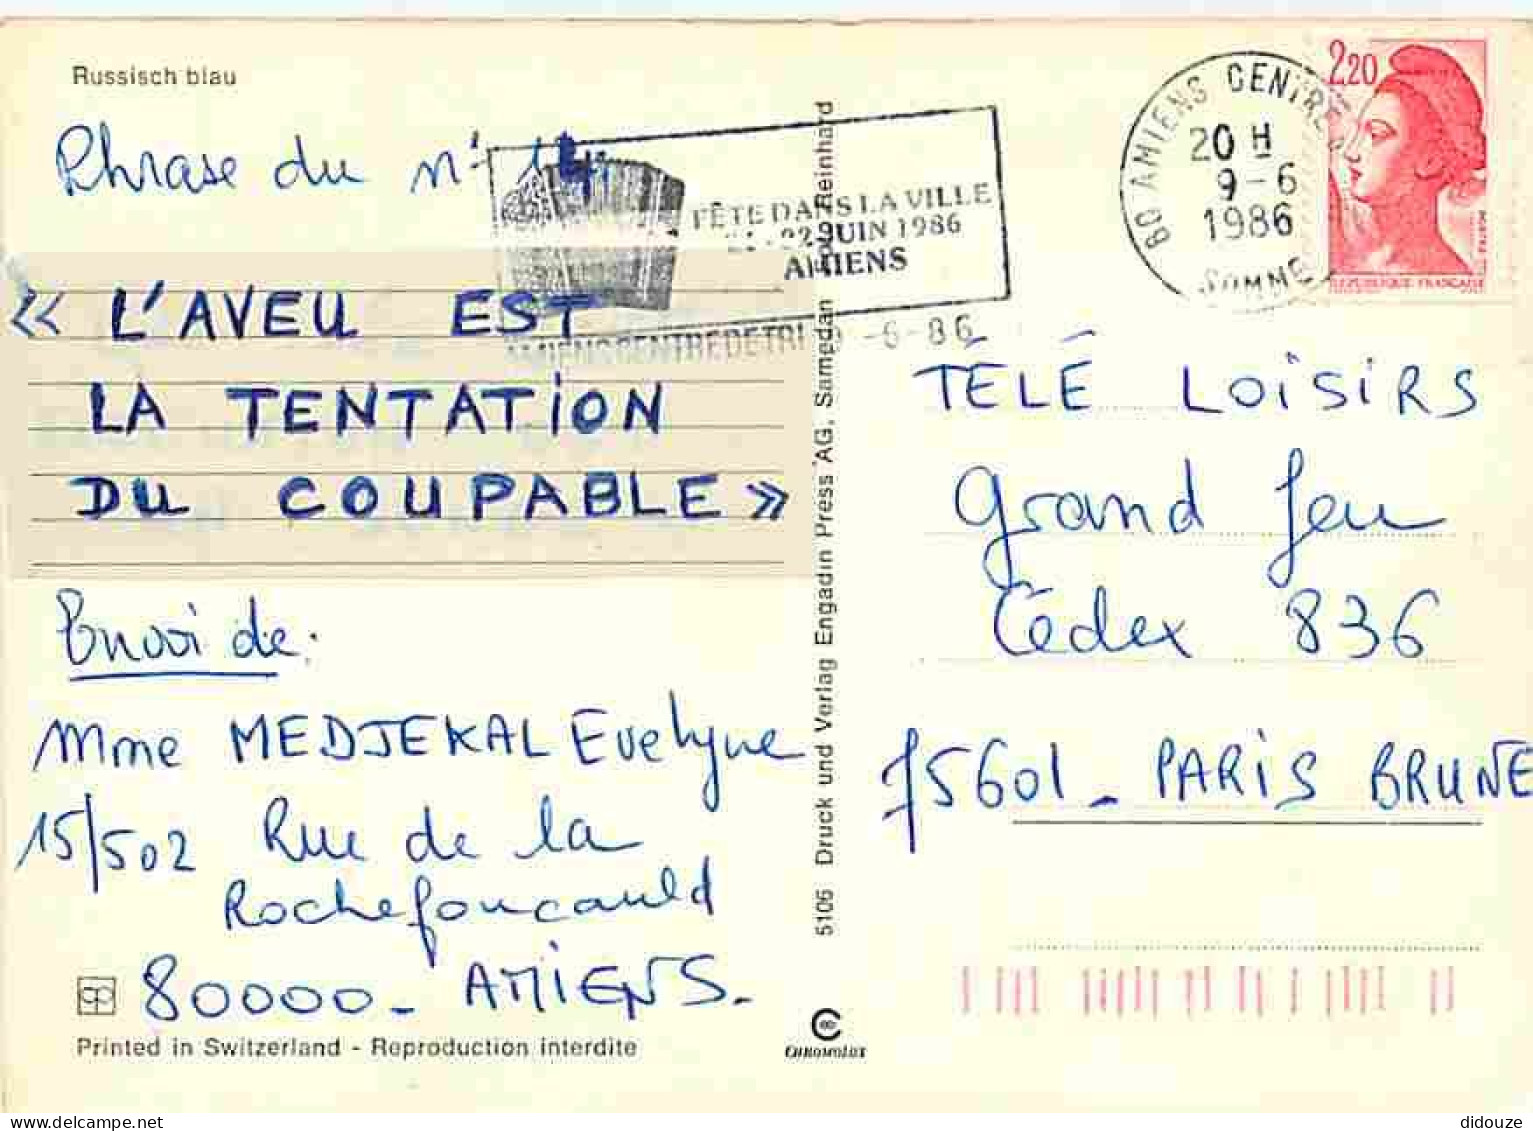 Russisch blau
Phrase du n° 14:
« L'AVEU EST
LA TENTATION
DU COUPABLE »
Envoi de:
Mme MEDJEKAL Evelyne
15/502 Rue de la
Rochefoucauld
80000 - AMIENS.
Printed in Switzerland - Reproduction interdite
5106 Druck und Verlag Engadin Press AG, Samedan Reinhard
CHROMOLUX
FÊTE DANS LA VILLE
22 JUIN 1986
AMIENS
AMIENS CENTRE DE TRI 9-6-86
80 AMIENS CENTRE
20 H
9-6
1986
SOMME
2,20
REPUBLIQUE FRANÇAISE
TÉLÉ LOISIRS
Grand Jeu
Cedex 836
75601 - PARIS BRUNE
delcampe.net
didouze